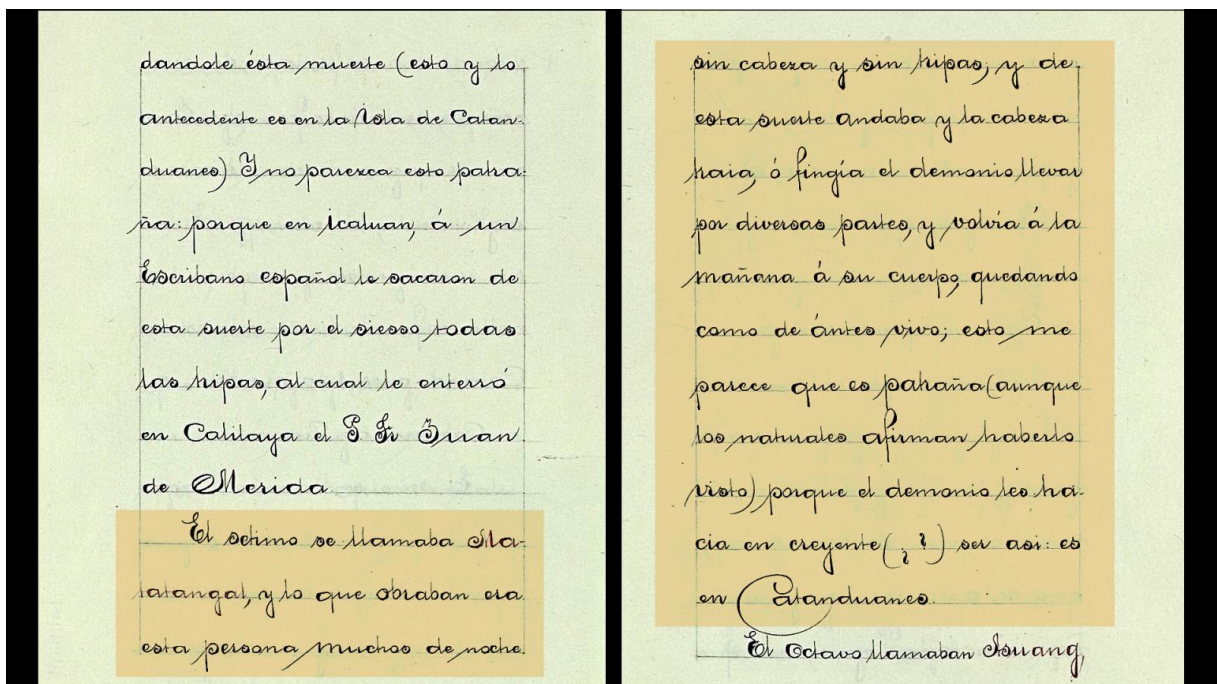 dandole ésta muerte (esto y lo
antecedente es en la Isla de Catan-
duanes) Y no parezca esto patra-
ña: porque en Icaluan, á un
Escribano español le sacaron de
esta suerte por el siesso todas
las tripas, al cual le enterró
en Calilaya el P. Fr. Juan
de Merida
El setimo se llamaba Ma-
tatangal, y lo que obraban era
esta persona muchos de noche
sin cabeza y sin tripas; y de
esta suerte andaba y la cabeza
traia, ó fingía el demonio llevar
por diversas partes, y volvía á la
mañana á su cuerpo, quedando
como de ántes vivo; esto me
parece que es patraña (aunque
los naturales afirman haberlo
visto) porque el demonio les ha-
cia en creyente (¿?) ser asi: es
en Catanduanes.
El Octavo llamaban Asuang,